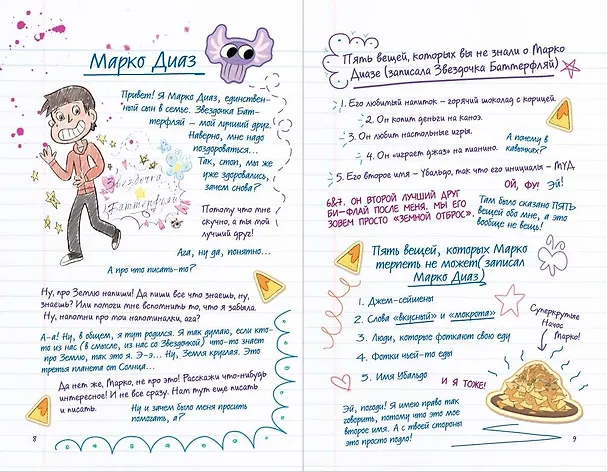 Марко Диаз
Привет! Я Марко Диаз, единствен-
ный сын в семье. Звездочка Бат-
терфляй – мой лучший друг.
Наверно, мне надо
поздороваться...
Так, стоп, мы же
уже здоровались,
зачем снова?
Звездочка
Баттерфляй
Потому что мне
скучно, а ты мой
лучший друг!
Ага, ну да, понятно...
А про что писать-то?
Ну, про Землю напиши! Да пиши все что знаешь, ну,
знаешь? Или помоги мне вспомнить то, что я забыла.
Ну, напомни про мои напоминалки, ага?
А-а! Ну, в общем, я тут родился. Я так думаю, если кто-
то из нас (в смысле, из нас со Звездочкой) что-то знает
про Землю, так это я. Э-э... Ну, Земля круглая. Это
третья планета от Солнца...
Да нет же, Марко, не про это! Расскажи что-нибудь
интересное! И не все сразу. Нам тут еще писать
и писать.
Ну и зачем было меня просить
помогать, а?
8
Пять вещей, которых вы не знали о Марко
Диазе (записала Звездочка Баттерфляй)
1. Его любимый напиток – горячий шоколад с корицей.
2. Он копит деньги на каноэ.
3. Он любит настольные игры.
4. Он «играет джаз» на пианино.
А почему в
кавычках?
5. Его второе имя – Убальдо, так что его инициалы – МУД.
ОЙ, ФУ!
Эй!
6&7. ОН ВТОРОЙ ЛУЧШИЙ ДРУГ
БИ-ФЛАЙ ПОСЛЕ МЕНЯ. МЫ ЕГО
ЗОВЕМ ПРОСТО «ЗЕМНОЙ ОТБРОС».
Там было сказано ПЯТЬ
вещей обо мне, а это
вообще не вещь!
Пять вещей, которых Марко
терпеть не может (записал
Марко Диаз)
1. Джем-сейшены
2. Слова «вкусный» и «мокрота»
3. Люди, которые фоткают свою еду
4. Фотки чьей-то еды
5. Имя Убальдо
И Я ТОЖЕ!
Суперкрутые
Начос
Марко!
Эй, погоди! Я имею право так
говорить, потому что это мое
второе имя. А с твоей стороны
это просто подло!
9